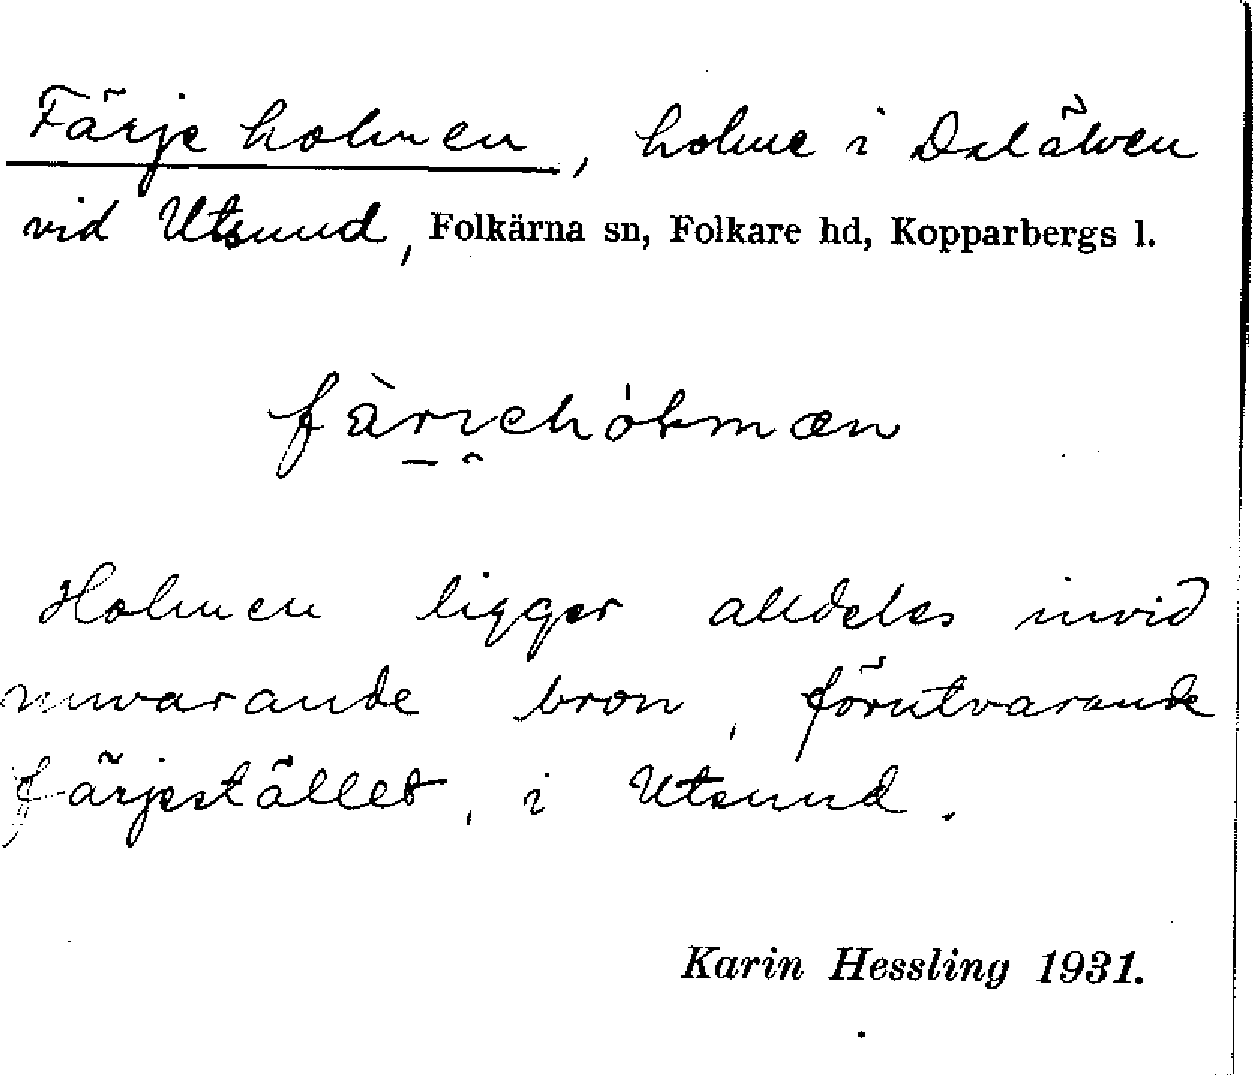 Färjeholmen, holme i Dalälven
vid Utsund, Folkärna sn, Folkare hd, Kopparbergs l.
Holmen ligger alldeles invid
nuvarande bron, förutvarande
färjestället, i Utsund.
Karin Hessling 1931.